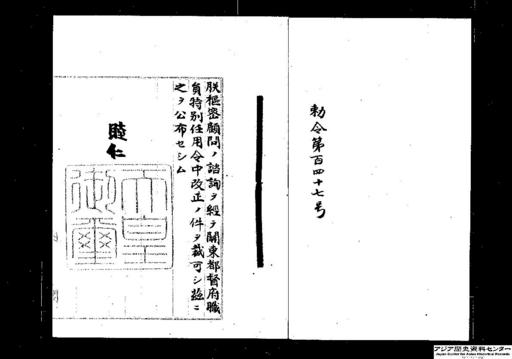 勅令第百四十七号
朕枢密顧問ノ諮詢ヲ経テ関東都督府職
員特別任用令中改正ノ件ヲ裁可シ茲ニ
之ヲ公布セシム
睦仁
天皇
御璽
アジア歴史資料センター
Japan Center for Asian Historical Records